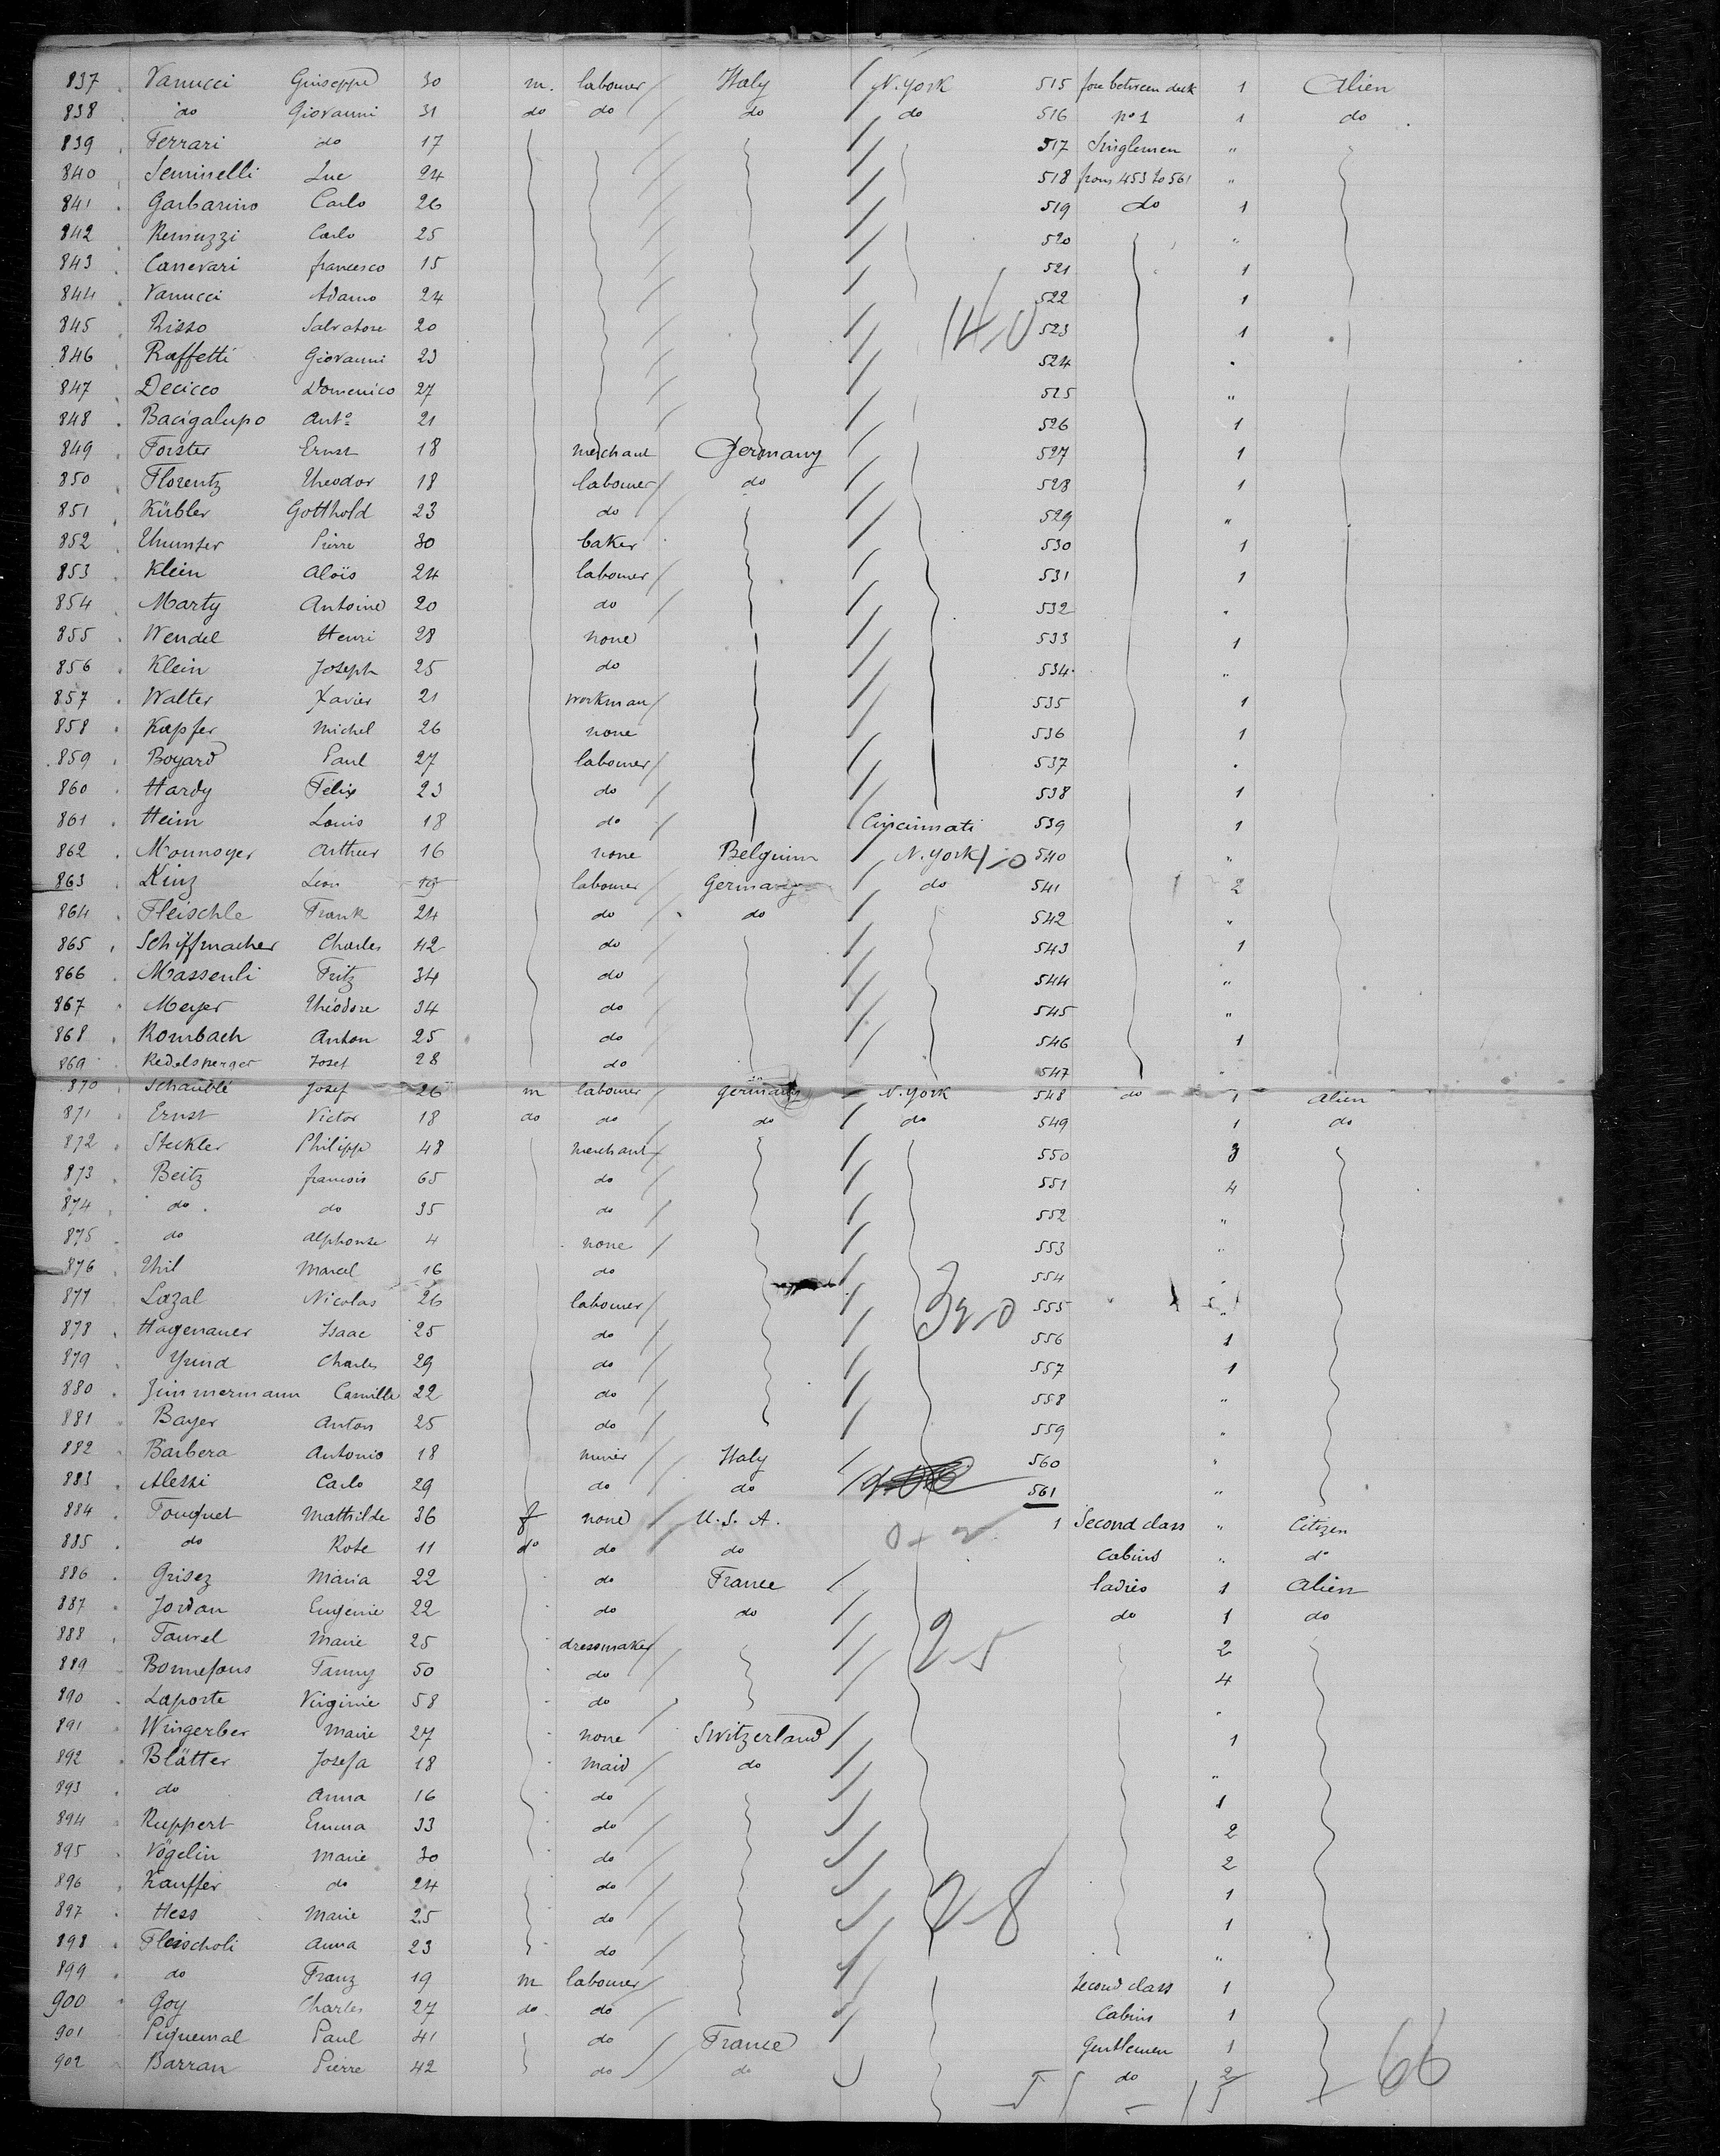 837 Vanucci Giuseppe 30 m. labourer Italy N. York 515 fore between deck 1 Alien
838 do Giovanni 31 do do do do 516 no 1 1 do
839 Ferrari do 17 517 Singlemen "
840 Luc 24 518 from 453 to 561 "
841 Garbarino Carlo 26 519 do 1
842 Remuzzi Carlo 25 520 "
843 Canevari francesco 15 521 1
844 Vanucci Adamo 24 522 1
845 Risso Salvatore 20 140 523 1
846 Raffetti Giovanni 23 524 "
847 Decicco Domenico 27 525 "
848 Bacigalupo Anto 21 526 1
849 Forster Ernst 18 merchant Germany 527 1
850 Florentz Theodor 18 labourer do 528 1
851 Kübler Gotthold 23 do 529 "
852 Pierre 30 baker 530 1
853 Klein Aloïs 24 labourer 531 1
854 Marty Antoine 20 do 532 "
855 Wendel Henri 28 none 533 1
856 Klein Joseph 25 do 534 "
857 Walter Xavier 21 workman 535 1
858 Kapfer Michel 26 none 536 1
859 Boyard Paul 27 labourer 537 "
860 Hardy Félix 23 do 538 1
861 Heim Louis 18 do Cincinnati 539 1
862 Monnoyer Arthur 16 none Belgium N. York 540 "
863 Kinz Léon 19 labourer Germany do 541 2
864 Fleischle Frank 24 do do 542 "
865 Schiffmacher Charles 42 do 543 1
866 Massenli Fritz 34 do 544 "
867 Meyer Théodore 34 do 545 "
868 Rombach Anton 25 do 546 1
869 Redelsperger Josef 28 do 547 "
870 Schäublé Josef 26 m labourer Germany N. York 548 do 1 Alien
871 Ernst Victor 18 do do do do 549 1 do
872 Steckler Philippe 48 merchant 550 3
873 Beitz francois 65 do 551 4
874 do do 35 do 552 "
875 do Alphonse 4 none 553 "
876 Thil Marcel 16 do 554 "
877 Lazal Nicolas 26 labourer 320 555 "
878 Hagenauer Isaac 25 do 556 1
879 Charles 29 do 557 1
880 Zimmermann Camille 22 do 558 "
881 Bayer Anton 25 do 559 "
882 Barbera Antonio 18 miner Italy 560 "
883 Alessi Carlo 29 do do 561 "
884 Fouquet Mathilde 36 f none U.S.A. 1 Second class " Citizen
885 do Rose 11 do do do Cabins " do
886 Grisez Maria 22 do France ladies 1 Alien
887 Jordan Eugénie 22 do do do 1 do
888 Tourel Marie 25 dressmaker 25 2
889 Bonnefous Fanny 50 do 4
890 Laporte Virginie 58 do "
891 Wingerber Marie 27 none Switzerland 1
892 Blätter Josefa 18 maid do "
893 do Anna 16 do 1
894 Ruppert Emma 33 do 2
895 Vögelin Marie 30 do 2
896 Kauffer do 24 do 28 1
897 Hess Marie 25 do 1
898 Fleischoli Anna 23 do "
899 do Franz 19 m labourer Second class 1
900 Goy Charles 27 do do Cabins 1
901 Piquemal Paul 41 do France Gentlemen 1
902 Barran Pierre 42 do do do 2 66